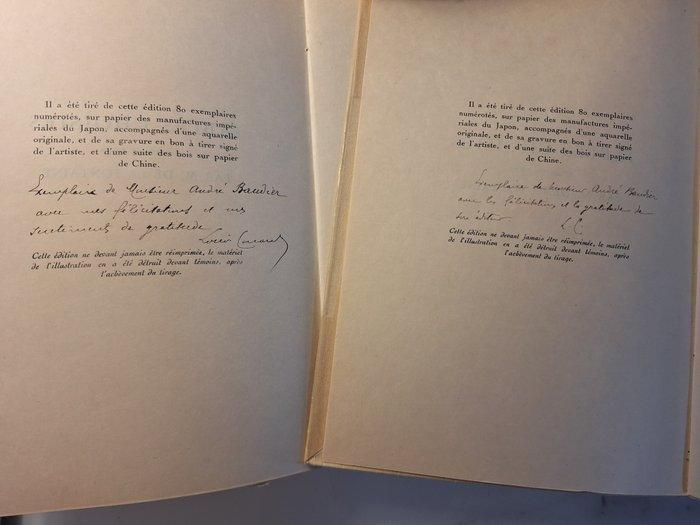 Il a été tiré de cette édition 80 exemplaires
numérotés, sur papier des manufactures impé-
riales du Japon, accompagnés d'une aquarelle
originale, et de sa gravure en bon à tirer signé
de l'artiste, et d'une suite des bois sur papier
de Chine.
Exemplaire de Monsieur André Baudier
avec mes félicitations et mes
sentiments de gratitude
Louis Conard
Cette édition ne devant jamais être réimprimée, le matériel
de l'illustration en a été détruit devant témoins, après
l'achèvement du tirage.
Il a été tiré de cette édition 80 exemplaires
numérotés, sur papier des manufactures impé-
riales du Japon, accompagnés d'une aquarelle
originale, et de sa gravure en bon à tirer signé
de l'artiste, et d'une suite des bois sur papier
de Chine.
Exemplaire de monsieur André Baudier
avec les félicitations et la gratitude de
son éditeur
L. C
Cette édition ne devant jamais être réimprimée, le matériel
de l'illustration en a été détruit devant témoins, après
l'achèvement du tirage.